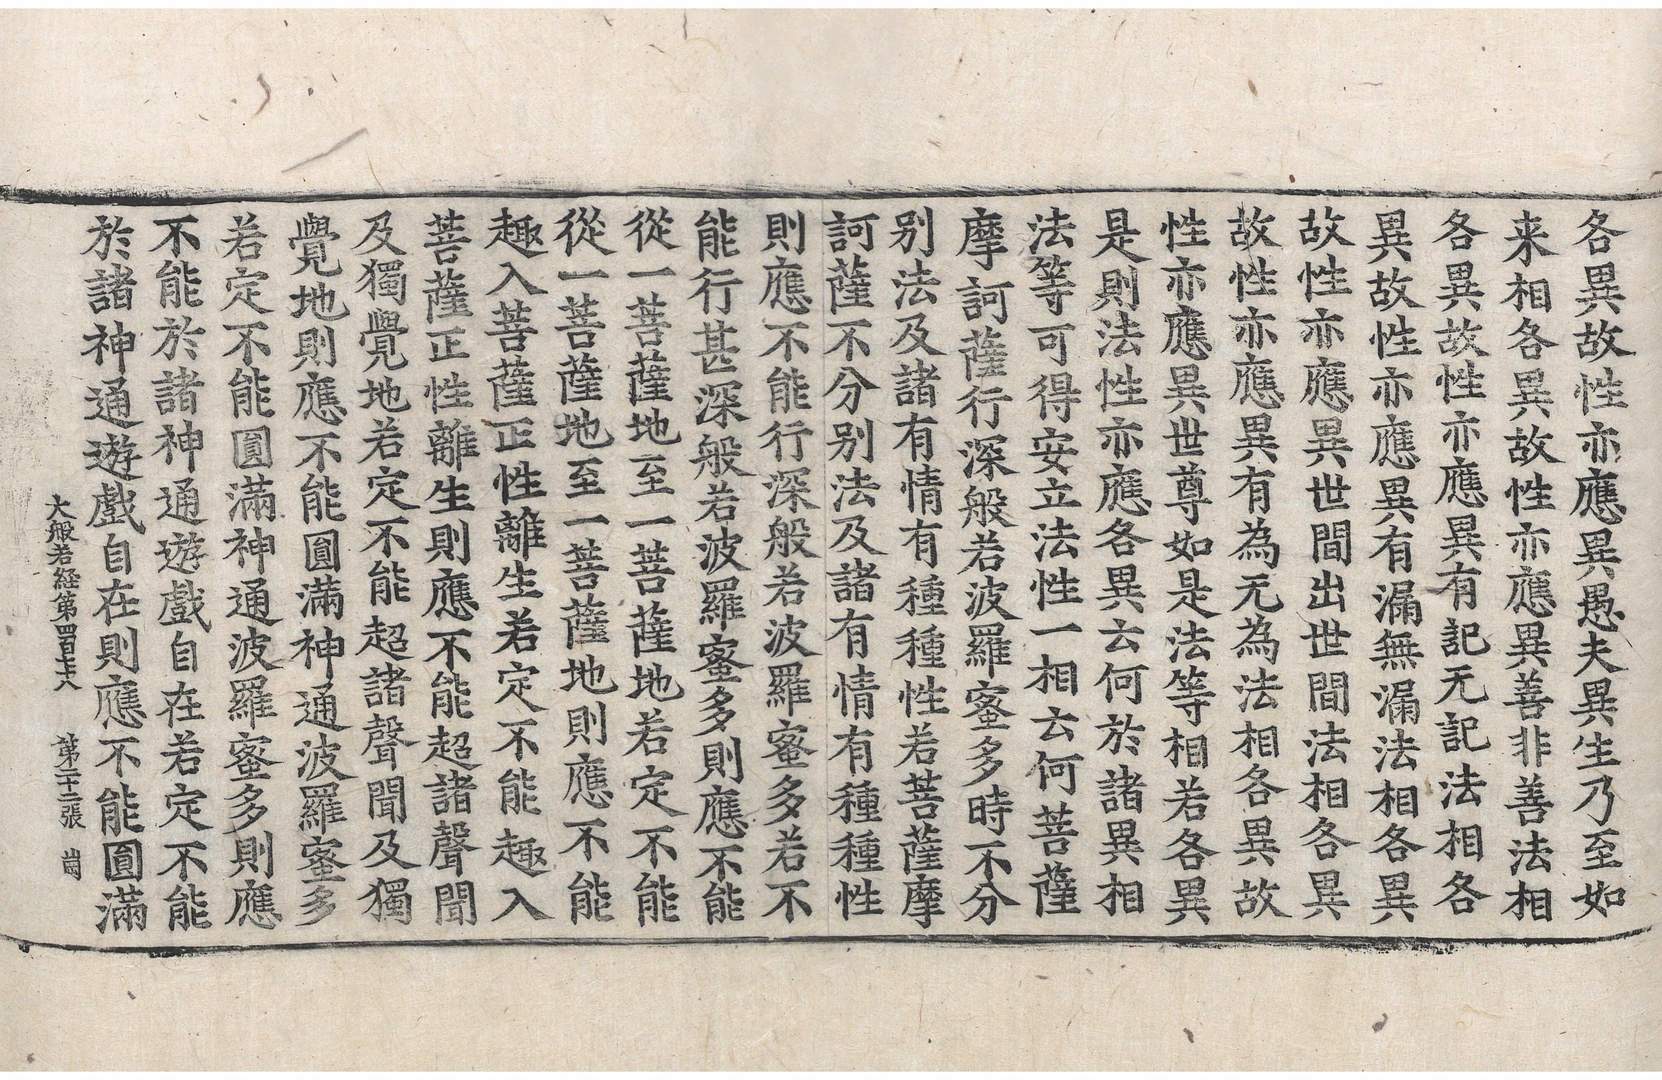 各異故性亦應異愚夫異生乃至如
来相各異故性亦應異善非善法相
各異故性亦應異有記无記法相各
異故性亦應異有漏無漏法相各異
故性亦應異世間出世間法相各異
故性亦應異有為无為法相各異故
性亦應異世尊如是法等相若各異
是則法性亦應各異云何於諸異相
法等可得安立法性一相云何菩薩
摩訶薩行深般若波羅蜜多時不分
别法及諸有情有種種性若菩薩摩
訶薩不分别法及諸有情有種種性
則應不能行深般若波羅蜜多若不
能行甚深般若波羅蜜多則應不能
從一菩薩地至一菩薩地若定不能
從一菩薩地至一菩薩地則應不能
趣入菩薩正性離生若定不能趣入
菩薩正性離生則應不能超諸聲聞
及獨覺地若定不能超諸聲聞及獨
覺地則應不能圓滿神通波羅蜜多
若定不能圓滿神通波羅蜜多則應
不能於諸神通遊戲自在若定不能
於諸神通遊戲自在則應不能圓滿
大般若経第四百七十八 第二十二張 崗